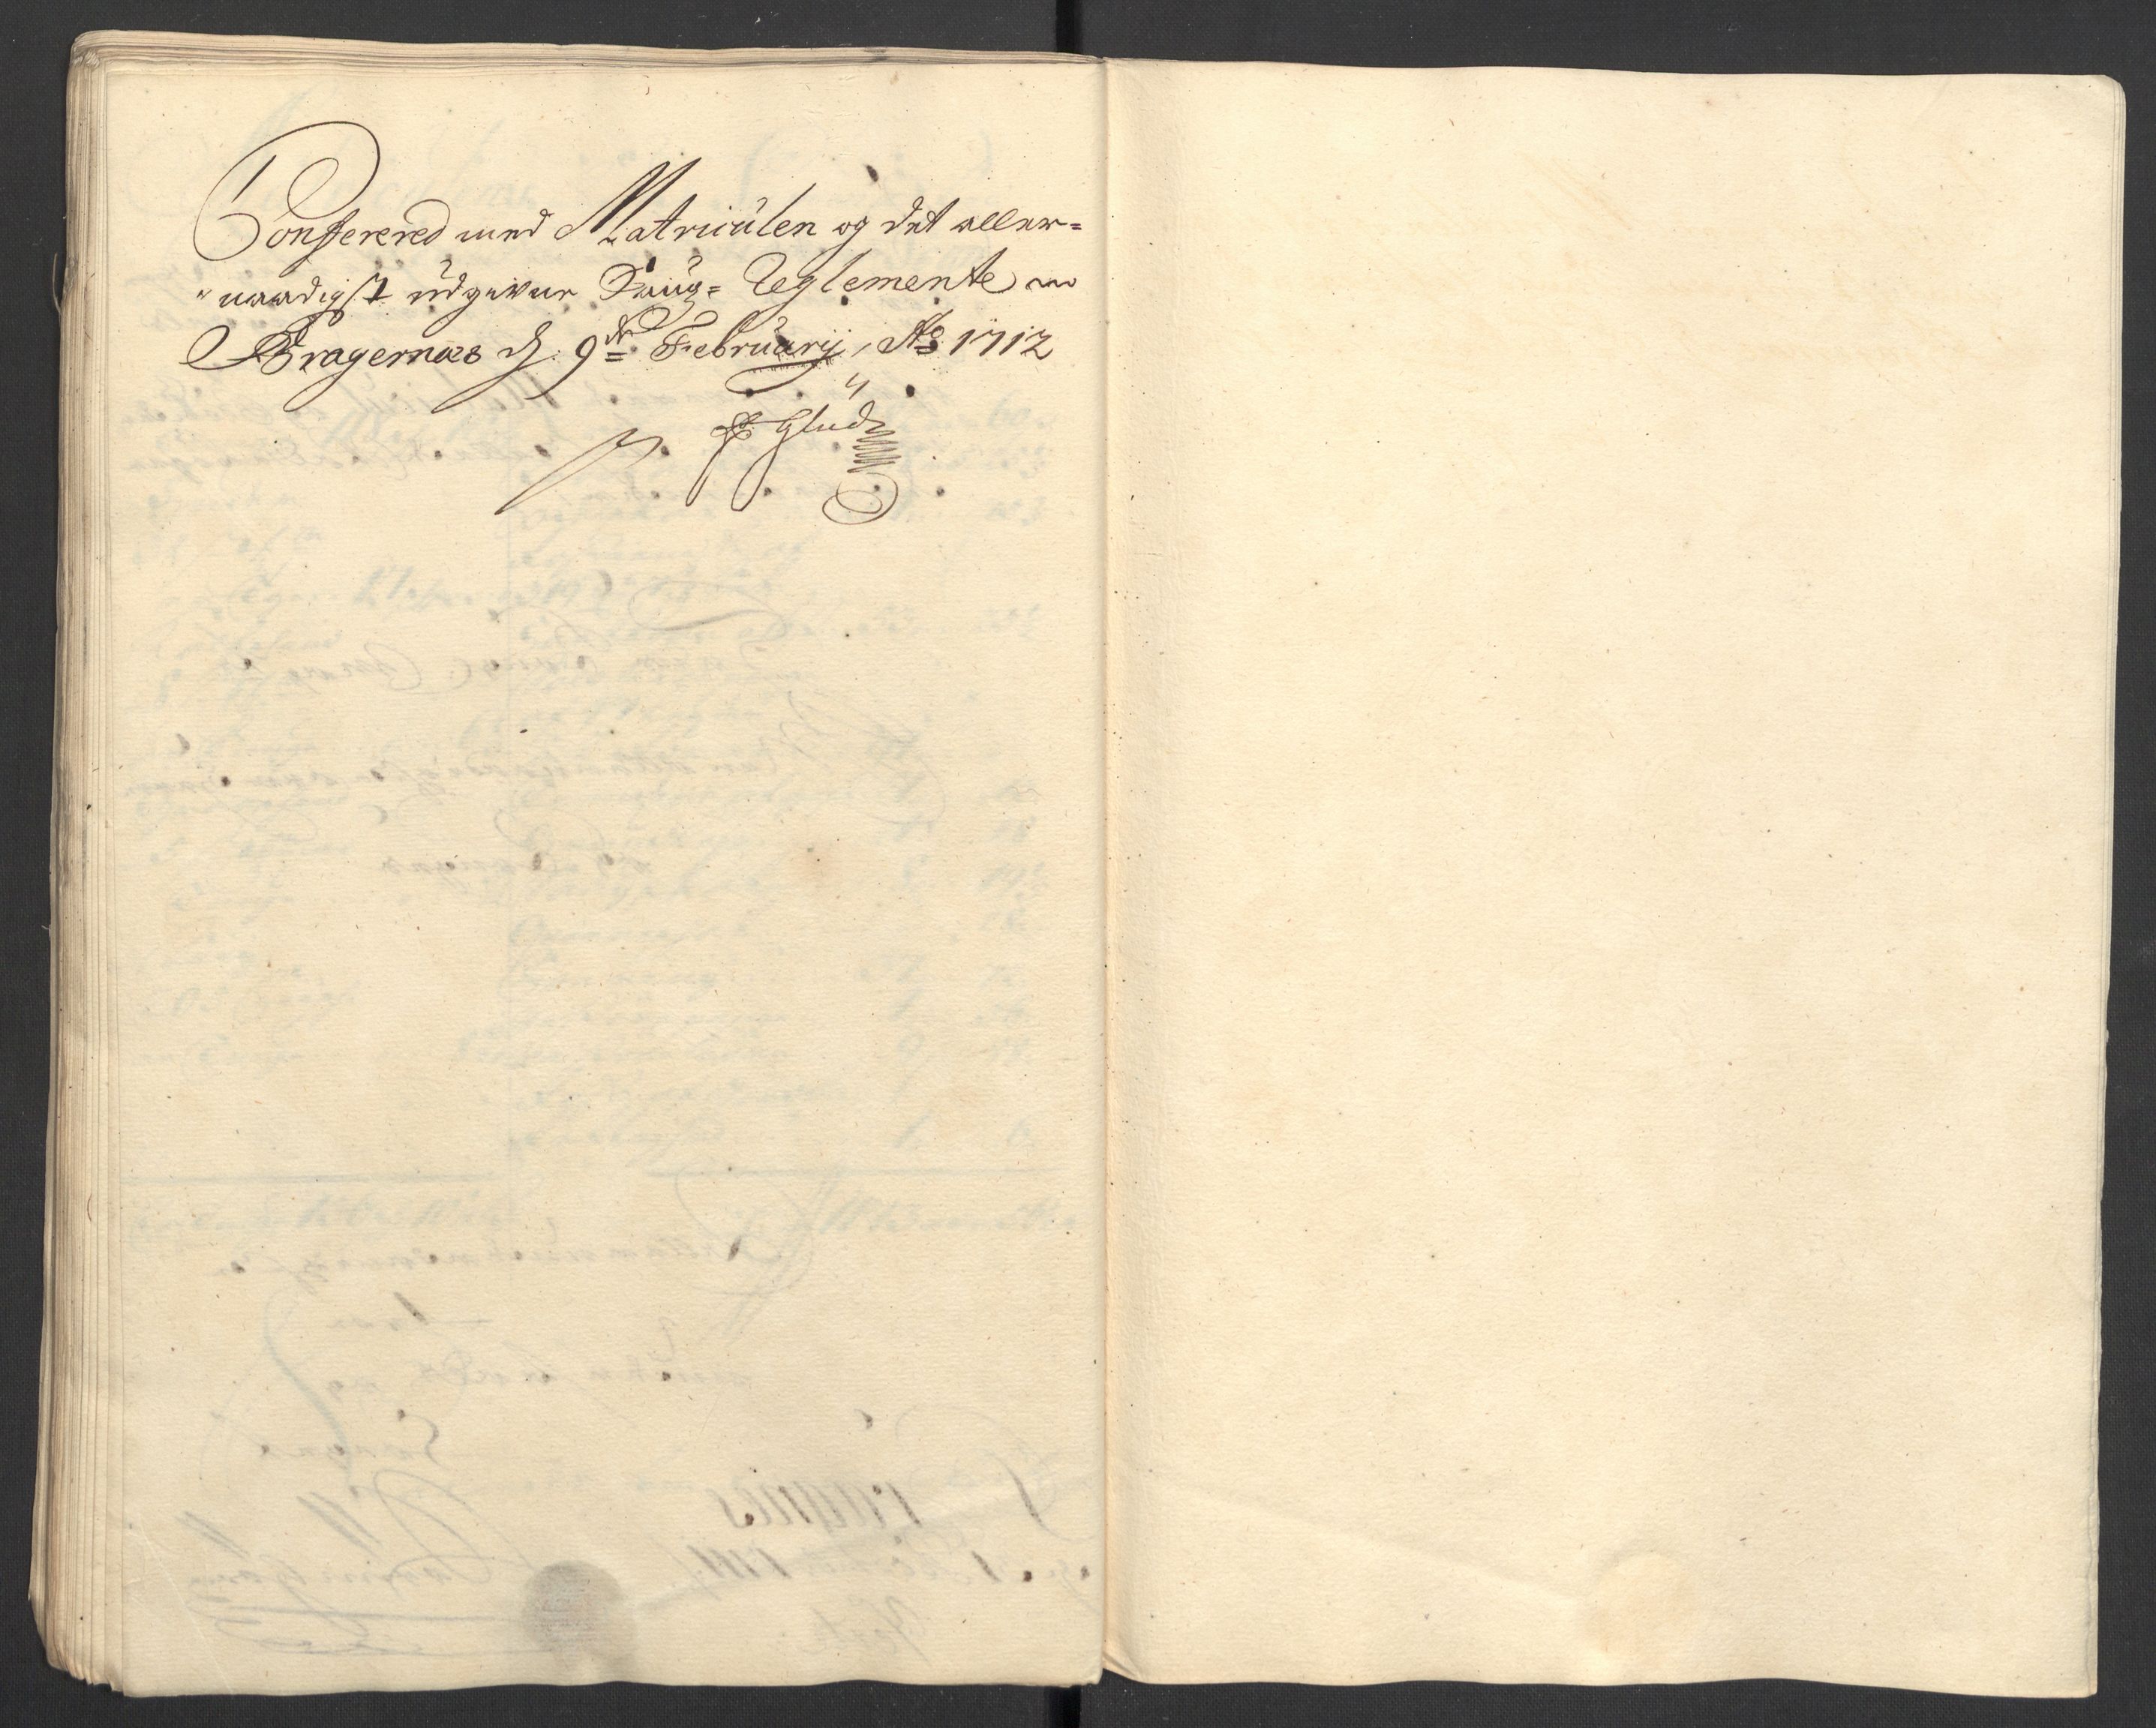 Conferered med Matriculen og det aller-
naadigst udgivne Saug-Reglemente
Bragernæs d: 9de Februarij Ao 1712
Glud